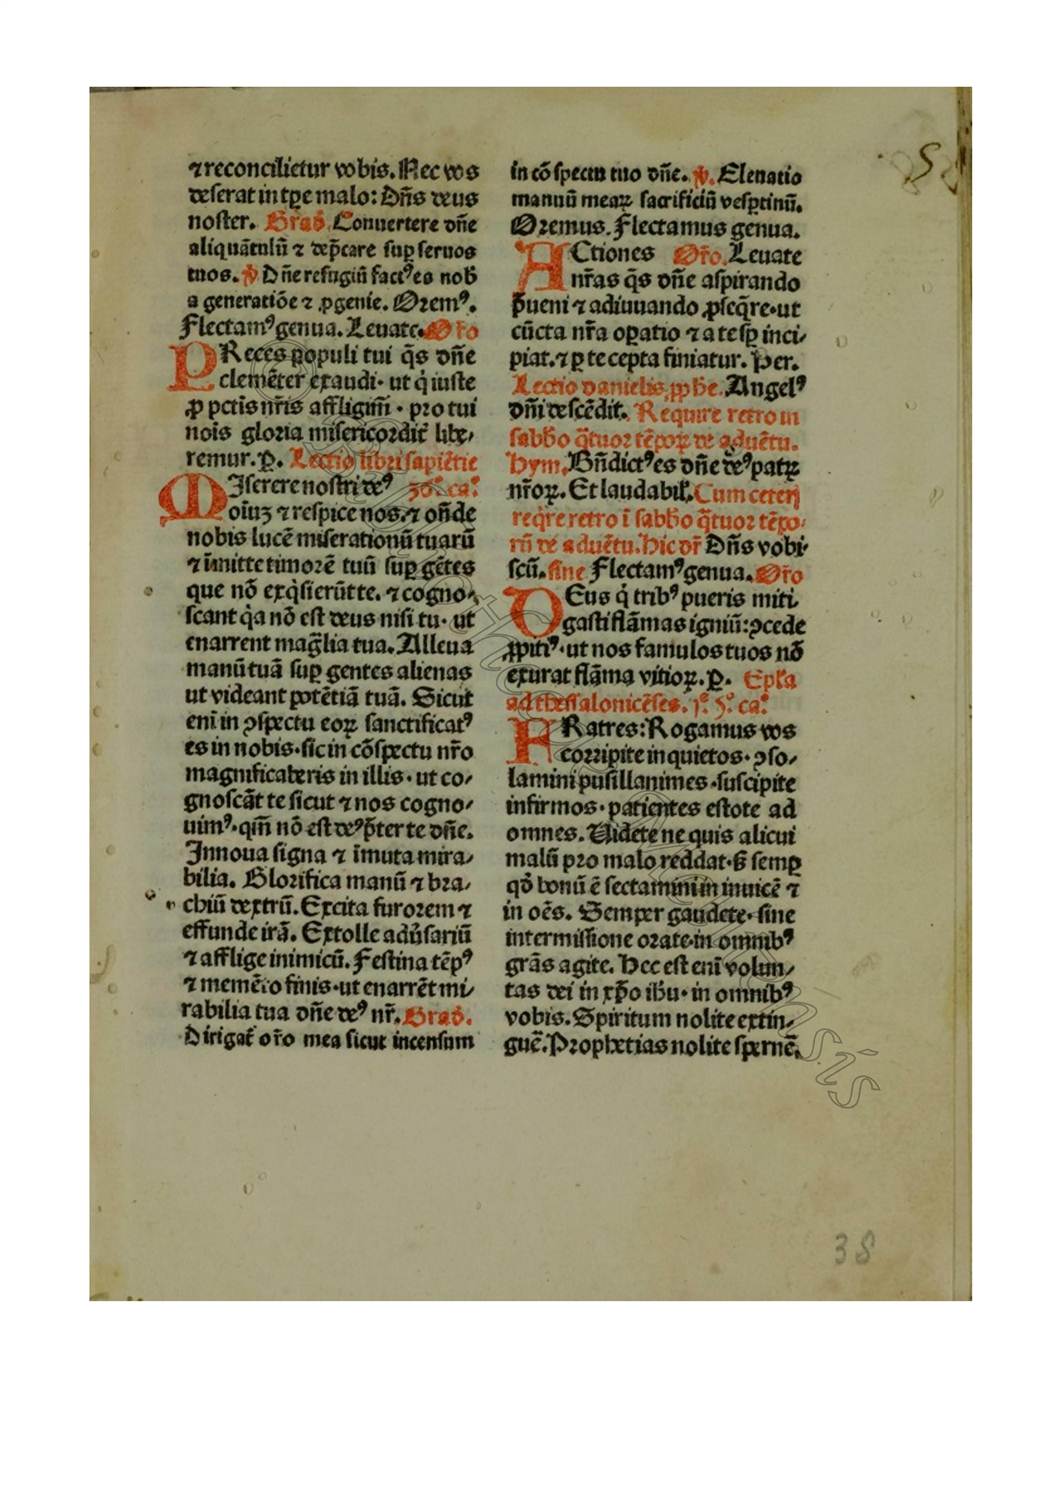 ⁊ reconcilietur vobis. Nec vos
deserat in tꝑe malo: Dn̄s deus
noster. Grad̄. Conuertere dn̄e
aliquātulū ⁊ dep̄care suꝑ seruos
tuos. ℣ Dn̄e refugiū factꝰ es nob̄
a generatiōe ⁊ ꝓgenie. Oremꝰ.
Flectamꝰ genua. Leuate. Or̄o
PReces populi tui q̄s dn̄e
clemēter exaudi· ut q̇ iuste
ꝓ pctīs nr̄is affligim̄· pro tui
nois̄ gloria misericordit̄ libe⸗
remur. P̲. Lectio libri sapiētie
MIserere nostri deꝰ 36.° ca.°
oīuꝫ ⁊ respice nos. ⁊ on̄de
nobis lucē miserationū tuarū
⁊ īmitte timorē tuū suꝑ gētes
que nō exq̇sierūt te. ⁊ cogno⸗
scant q̇a nō est deus nisi tu· ut
enarrent mag̅lia tua. Alleua
manū tuā suꝑ gentes alienas
ut videant potētiā tuā. Sicut
eni̅ in ꝯspectu eoꝝ sanctificatꝰ
es in nobis· sic in cōspectu nr̄o
magnificaberis in illis· ut co⸗
gnoscāt te sicut ⁊ nos cogno⸗
uimꝰ· qm̄ nō est deꝰ p̄ter te dn̄e.
Innoua signa ⁊ īmuta mira⸗
bilia. Glorifica manū ⁊ bra⸗
chiū dextrū. Excita furorem ⁊
effunde irā. Extolle adu̇sariū
⁊ afflige inimicū. Festina tēpꝰ
⁊ memēto finis· ut enarrēt mi⸗
rabilia tua dn̄e deꝰ nr̄. Grad̄.
Dirigat̄ or̄o mea sicut incensum
in cō spectu tuo dn̄e. ℣. Eleuatio
manuū meaꝝ sacrificiū vesꝑtinū.
Oremus. Flectamus genua.
ACtiones Or̄o. Leuate
nr̄as q̄s dn̄e aspirando
p̄ueni ⁊ adiuuando ꝓseq̄re· ut
cūcta nr̄a oꝑatio ⁊ a te sꝑ inci⸗
piat. ⁊ ꝑ te cepta finiatur. Per.
Lectio danielis ꝓph̄e. Angelꝰ
dn̄i descēdit. Require retro in
sabb̄o q̄tuor tēpoꝝ de aduētu.
Hym. Bn̄dictꝰ es dn̄e deꝰ patꝝ
nr̄oꝝ. Et laudabil̄. Cum ceterꝭ
req̄re retro ī sabb̄o q̄tuor tēpo⸗
rū de aduētu. Hic or̄ Dn̄s vobi⸗
scū. sine Flectamꝰ genua. Or̄o
DEus q̇ tribꝰ pueris miti
gasti flāmas igniū: ꝯcede
ꝓpitiꝰ· ut nos famulos tuos nō
exurat flāma vitioꝝ. P̲. Epl̄a
ad thessalonicēses. 1.ᵃ 5.° ca.°
FRatres: Rogamus vos
corripite inquietos· ꝯso⸗
lamini pusillanimes· suscipite
infirmos· patientes estote ad
omnes. Uidete ne quis alicui
malū pro malo reddat· sꝫ semꝑ
qd̄ bonū ē sectamini in inuicē ⁊
in oēs. Semper gaudete· sine
intermissione orate· in omnibꝰ
grās agite. Hec est eni̅ volun⸗
tas dei in xp̄o ih̄u· in omnibꝰ
vobis. Spiritum nolite extin⸗
guē. Prophetias nolite spernē.
38